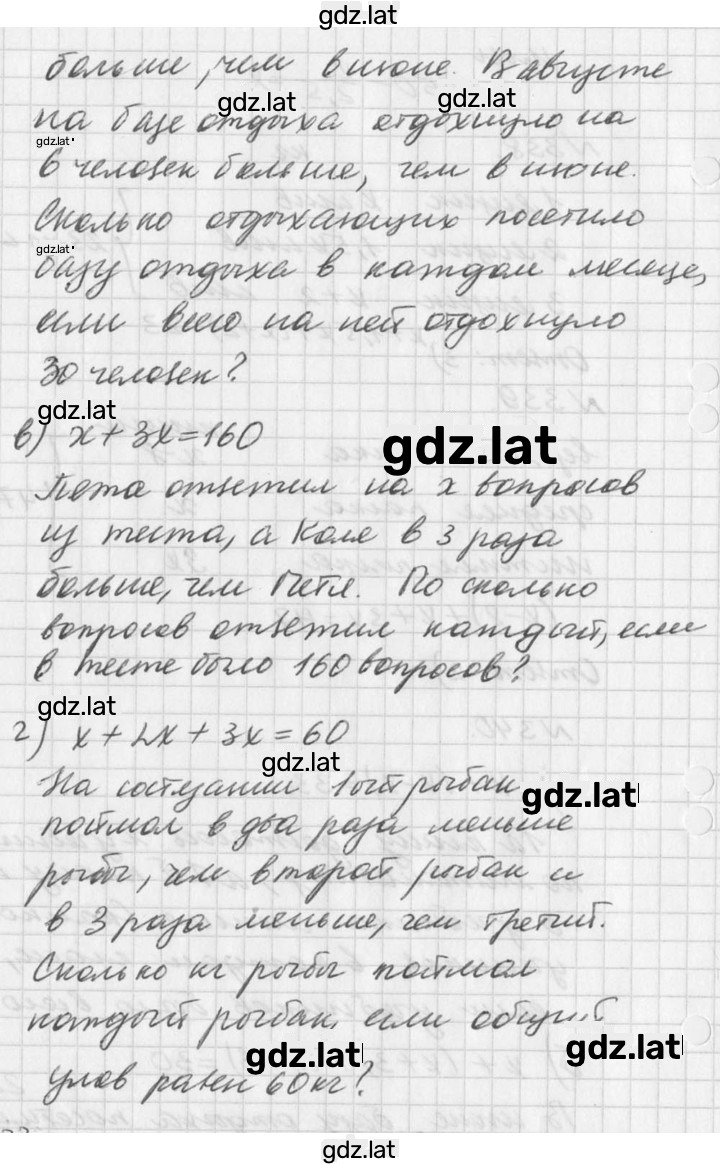 gdz.lat
больше, чем в июне. В августе
gdz.lat gdz.lat
на базе отдыха отдохнуло на
gdz.lat
6 человек больше, чем в июне.
Сколько отдыхающих посетило
gdz.lat
базу отдыха в каждом месяце,
если всего на ней отдохнуло
30 человек?
gdz.lat
в) x + 3x = 160
gdz.lat
Петя ответил на x вопросов
из теста, а Коля в 3 раза
больше, чем Петя. По сколько
вопросов ответил каждый, если
в тесте было 160 вопросов?
gdz.lat
г) x + 2x + 3x = 60
gdz.lat
На состязании 1ый рыбак
gdz.lat
поймал в два раза меньше
рыбы, чем второй рыбак и
в 3 раза меньше, чем третий.
Сколько кг рыбы поймал
каждый рыбак, если общий
gdz.lat gdz.lat
улов равен 60 кг?
gdz.lat